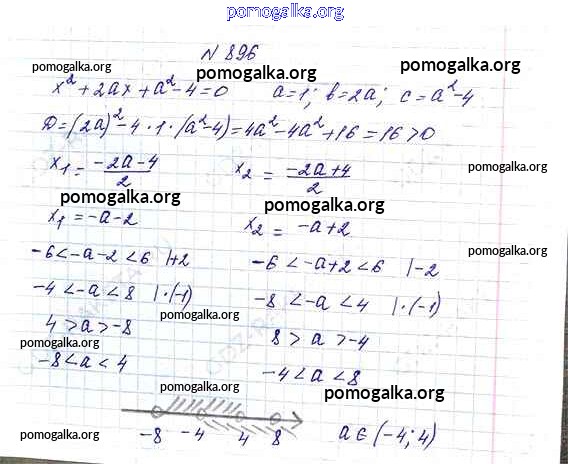 pomogalka.org
N 896
pomogalka.org pomogalka.org pomogalka.org
x² + 2ax + a² - 4 = 0 a = 1; b = 2a; c = a² - 4
D = (2a)² - 4 · 1 · (a² - 4) = 4a² - 4a² + 16 = 16 > 0
pomogalka.org pomogalka.org
x₁ = (-2a - 4)/2 x₂ = (-2a + 4)/2
pomogalka.org pomogalka.org
x₁ = -a - 2 x₂ = -a + 2
pomogalka.org
-6 < -a - 2 < 6 | +2 -6 < -a + 2 < 6 | -2
-4 < -a < 8 | · (-1) -8 < -a < 4 | · (-1)
pomogalka.org
4 > a > -8 8 > a > -4
pomogalka.org
-8 < a < 4 -4 < a < 8
pomogalka.org pomogalka.org
-8 -4 4 8 a ∈ (-4; 4)
pomogalka.org pomogalka.org pomogalka.org